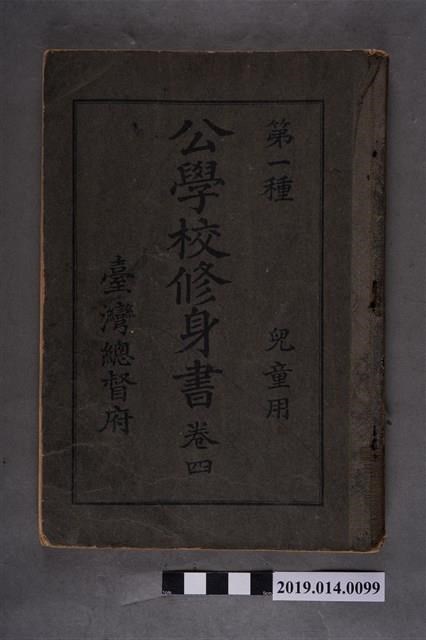 第一種 兒童用
公學校修身書 卷四
臺灣總督府
2019.014.0099